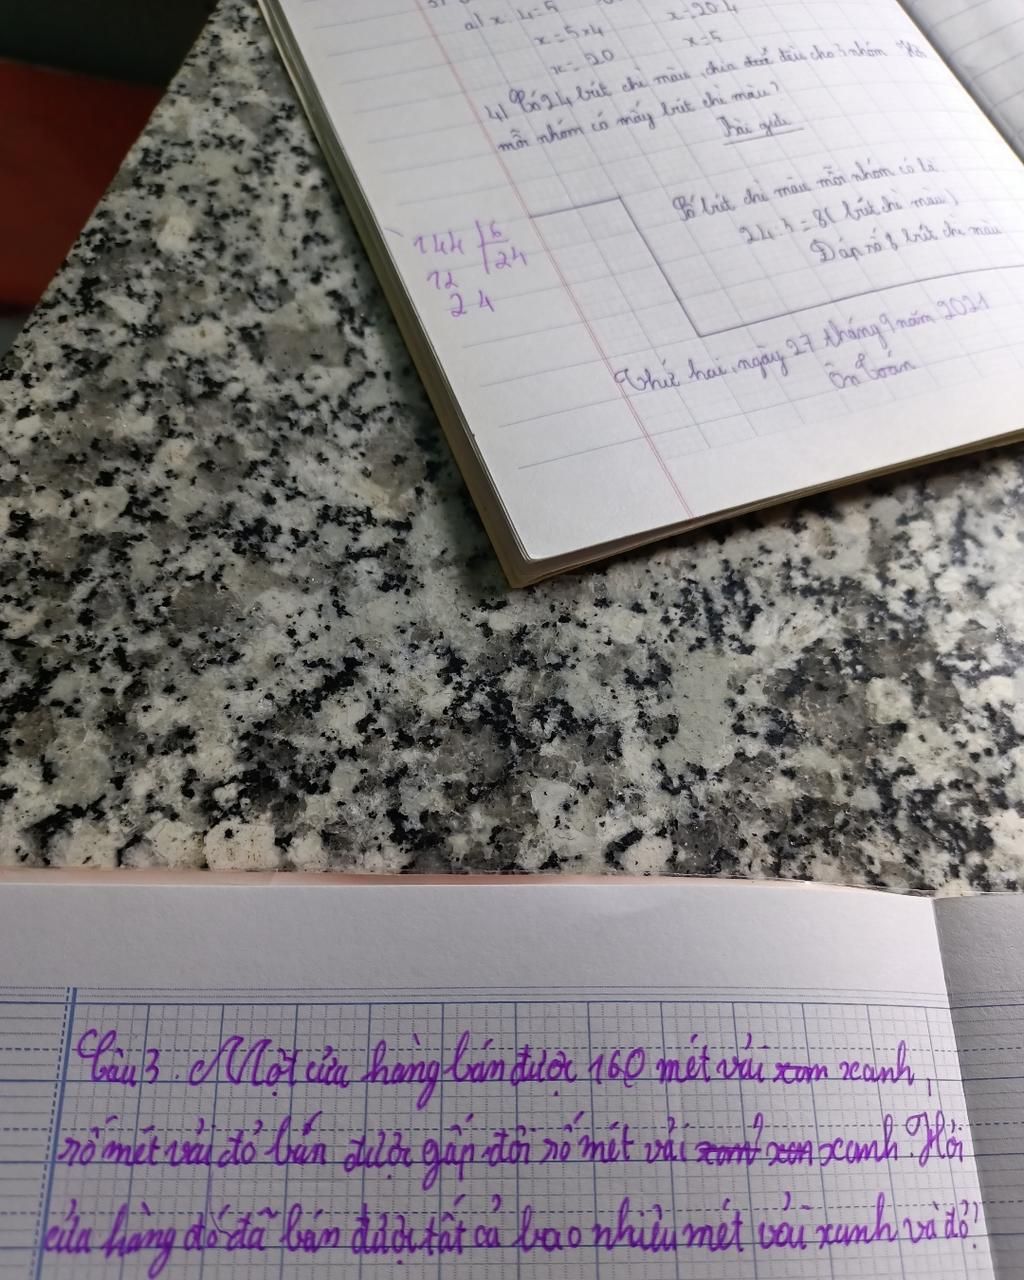 a) x : 4 = 5
x = 5 x 4
x = 20
x = 20 : 4
x = 5
4) Có 24 bút chì màu, chia đều cho 3 nhóm Hỏi
mỗi nhóm có mấy bút chì màu?
Bài giải
Số bút chì màu mỗi nhóm có là
24 : 3 = 8 ( bút chì màu )
Đáp số 8 bút chì màu
144 6
12 24
24
Thứ hai, ngày 27 tháng 9 năm 2021
Ôn Toán
Câu 3. Một cửa hàng bán được 160 mét vải xanh,
số mét vải đỏ bán được gấp đôi số mét vải xanh. Hỏi
cửa hàng đó đã bán được tất cả bao nhiêu mét vải xanh và đỏ?